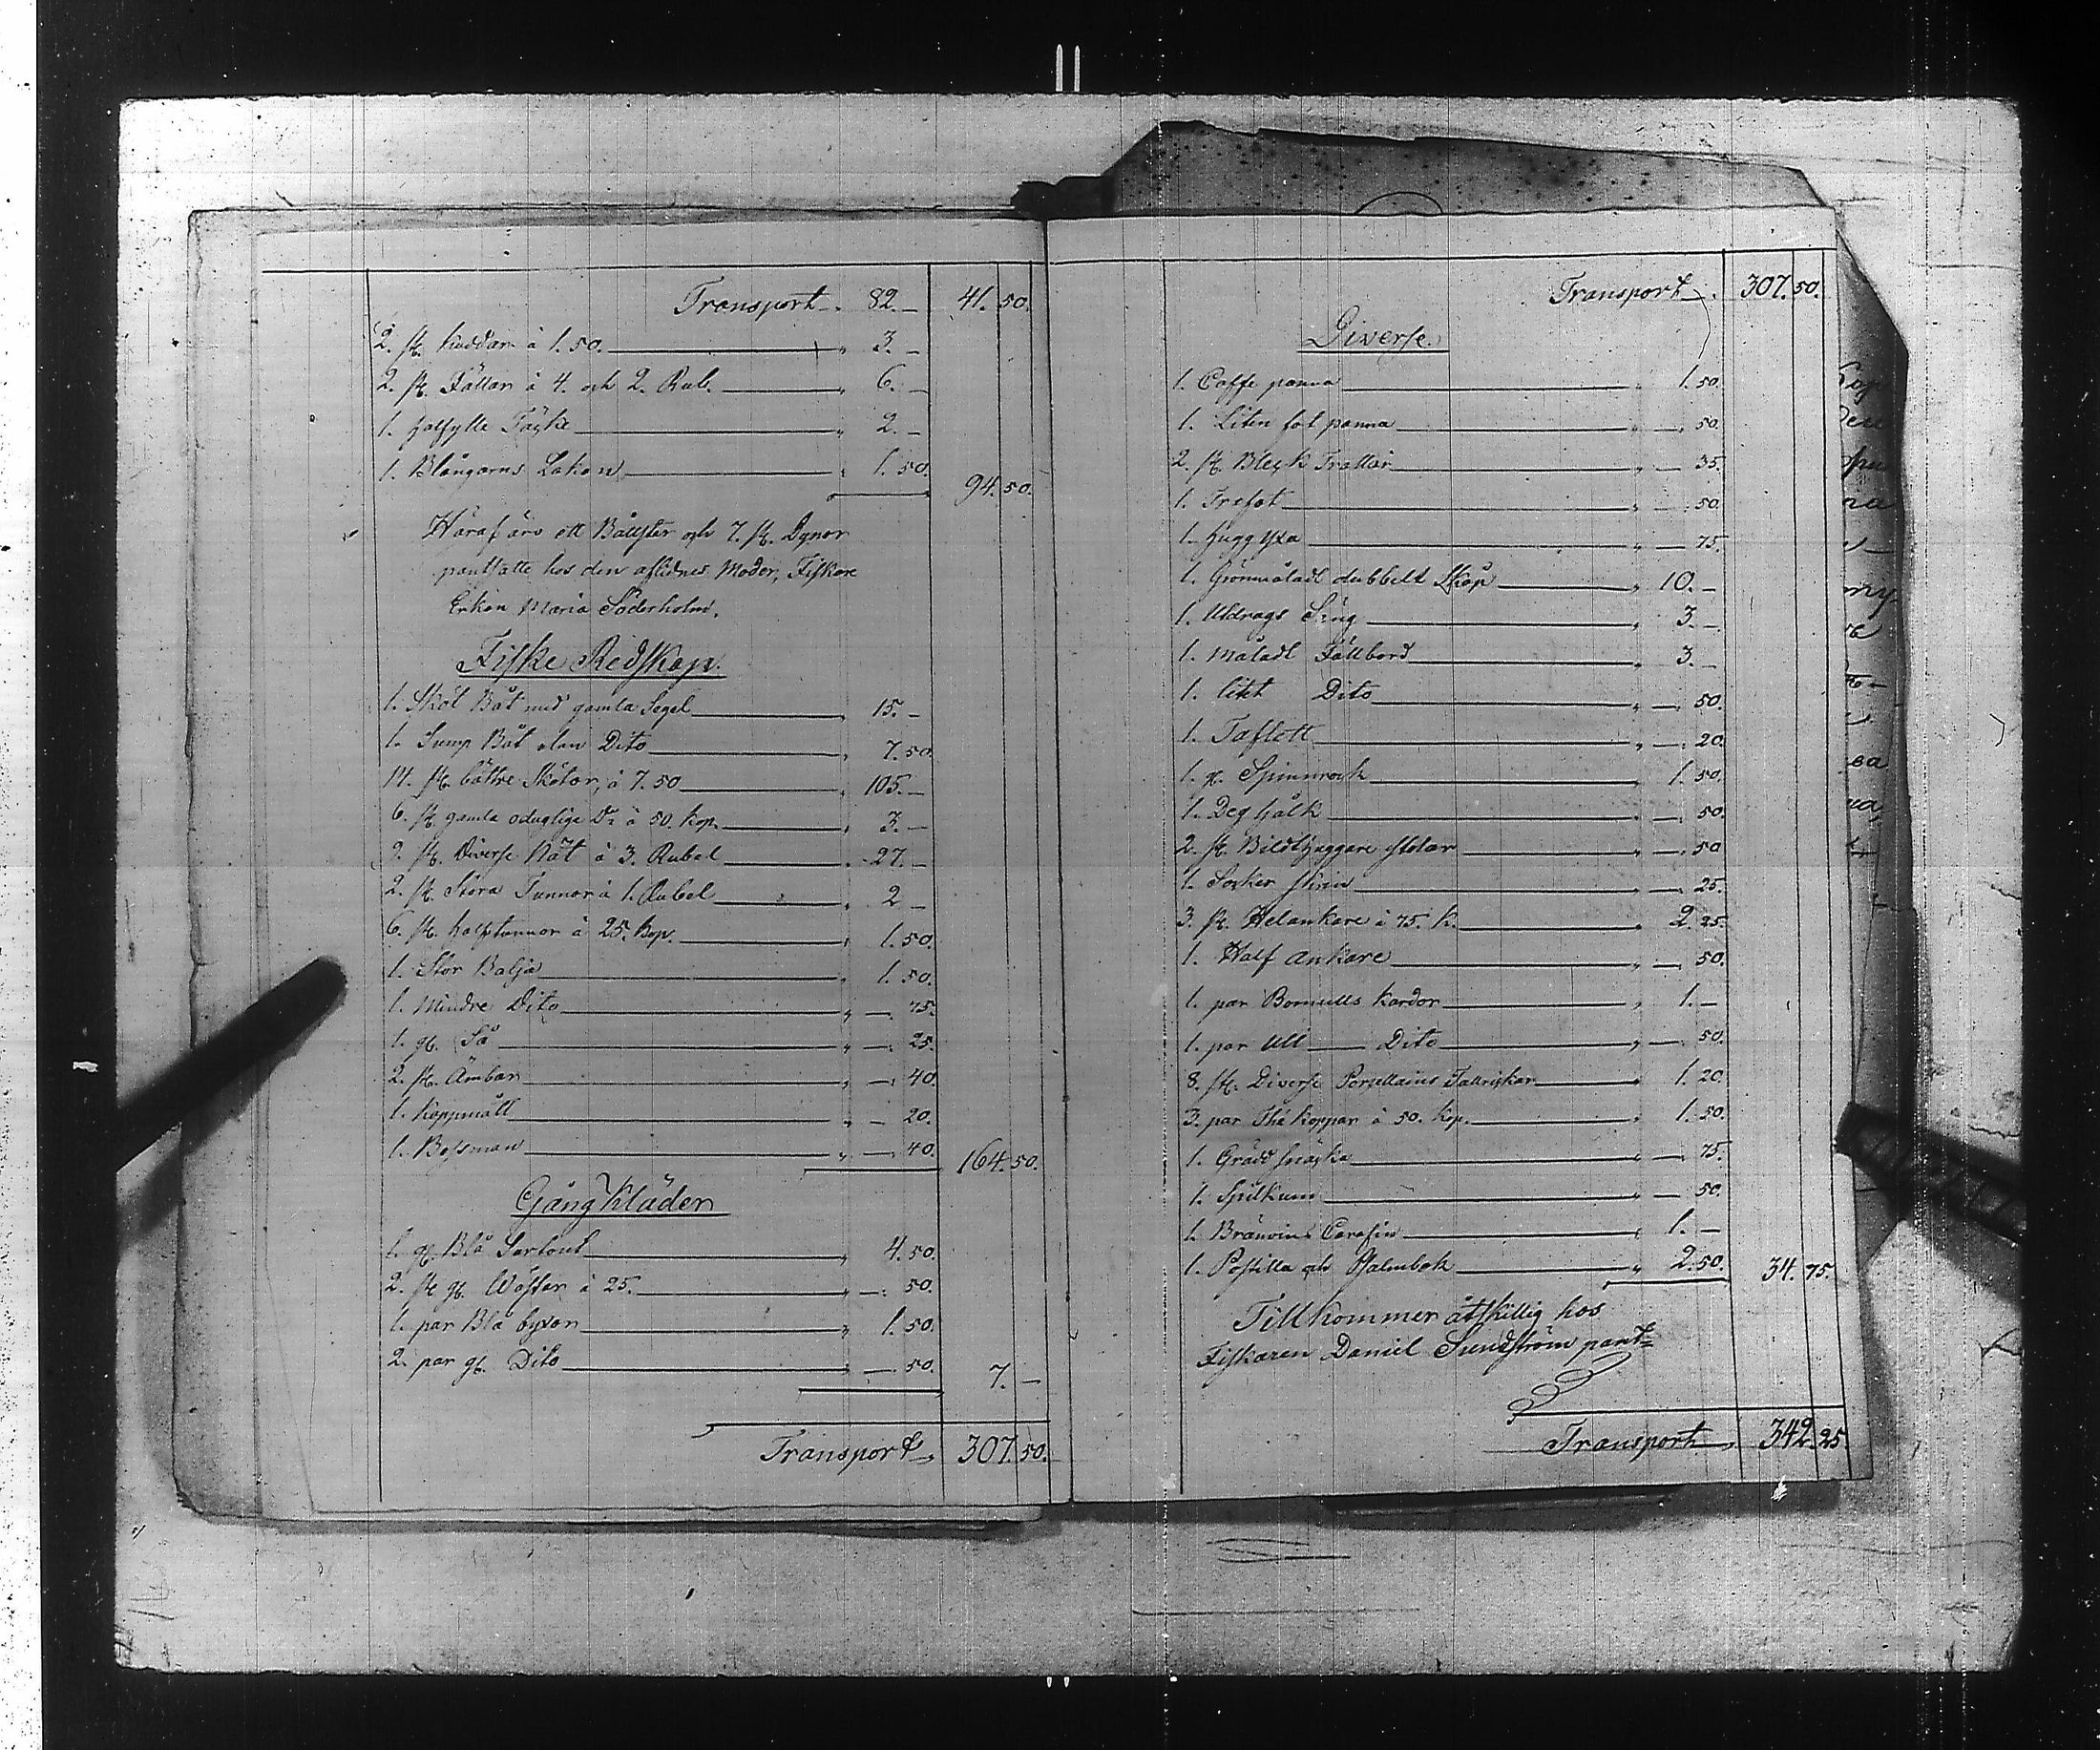 Transport. 82.— 41. 50.
2. st. Kuddar à 1.50. " 3.—
2. st. Fällar à 4. och 2. Rub. " 6.—
1. halfylle Täcke " 2.—
1. Blångarns Lakan " 1. 50. 94. 50.
Häraf äro ett Bolster och 7. st. Dynor
pantsatte hos den aflidnes Moder, Fiskare
Enkan Maria Söderholm.
Fiske Redskap.
1. Sköt Båt med gamla Segel " 15.—
1. Sump Båt utan Dito " 7. 50.
14. st. bättre Skötar, à 7.50 " 105.—
6. st. gamla oduglige Do à 50. Kop. " 3.—
9. st. Diverse Nät à 3. Rubel " 27.—
2. st. Stora Tunnor à 1. Rubel " 2 —
6. st. halftunnor à 25. Kop. " 1. 50.
1. Stor Balja " 1. 50.
1. Mindre Dito " —. 75.
1. gl. Så " —. 25.
2. st. Ämbar " —. 40.
1. Kappmått " — 20.
1. Besman " —. 40. 164. 50.
Gång Kläder
1. gl. Blå Sortout " 4. 50.
2. st. gl. Wästar à 25. " —. 50.
1. par Blå byxor " 1. 50.
2. par gl. Dito " — 50. 7.—
Transport. 307. 50.
Transport. 307. 50.
Diverse.
1. Caffe panna " 1. 50.
1. Liten fot panna " —. 50.
2. st. Bleck Trattar " — 35.
1. Trefot " —. 50.
1. Hugg Yxa " — 75.
1. Grönmåladt dubbelt Skåp " 10.—
1. Utdrags Säng " 3.—
1. Måladt Fällbord " 3.—
1. litet Dito " —. 50.
1. Taflett " —. 20.
1. gl. Spinnrock " 1. 50.
1. Deg " —. 50.
2. st. stolar " —. 50
1. Socker skrin " —. 25.
3. st. Helankare à 75. K. " 2. 25.
1. Half Ankare " —. 50.
1. par Bomulls Kardor " 1.—
1. par Ull — Dito " —. 50.
8. st. Diverse Porzellains Tallrickar " 1. 20.
3. par Thé Koppar à 50. Kop. " 1. 50.
1. Grädd snäcka " — 75.
1. Spilkum " — 50.
1. Bränvins Carafin " 1.—
1. Postilla och Psalmbok " 2. 50. 34. 75.
Tillkommer åtskillig hos
Fiskaren Daniel Sundström pant=
Transport. 342. 25.